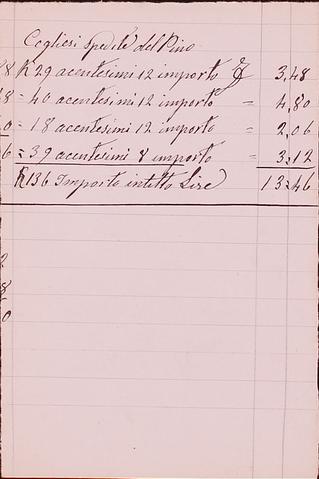 Cogliesi Spedite del Pino
8 K 29 a centesimi 12 importo £ 3,48
8 = 40 a centesimi 12 importo = 4,80
0 = 18 a centesimi 12 importo = 2,06
6 = 39 a centesimi 8 importo = 3,12
K 136 Importo in tutto Lire 13,46
2
8
6
0